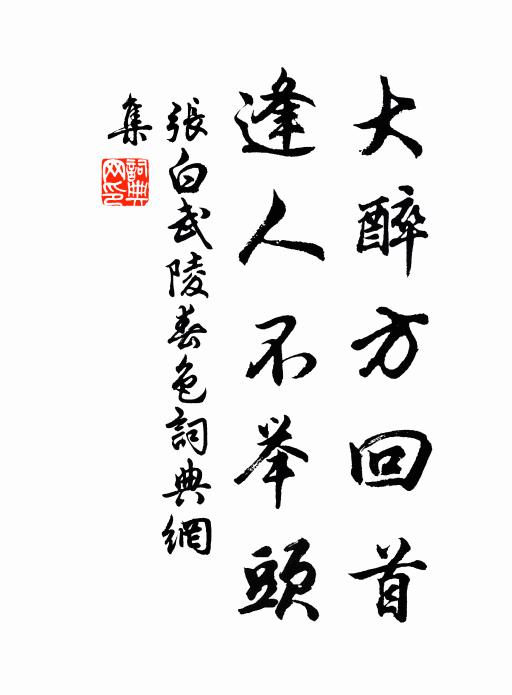 大醉方回首
逢人不举頭
張白武陵春色詞典網
集
詞典网印